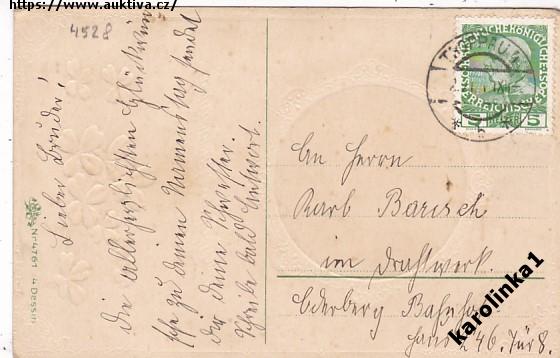 https://www.auktiva.cz/
4528
Lieber Bruder!
Die Allerherzlichsten Glückwünsche
zu deinem Namenstag sendet
dir deine Schwester.
Schreibe bald Antwort.
Nr 4761 4 Dessin
KAISERLICHEKÖNIGLICHE
ÖSTERREICHISCHE POST
5 5
An Herrn
Karl Barisch
im Drahtwerk.
Oderberg Bahnhof
Haus 246. Tür 8.
karolinka1